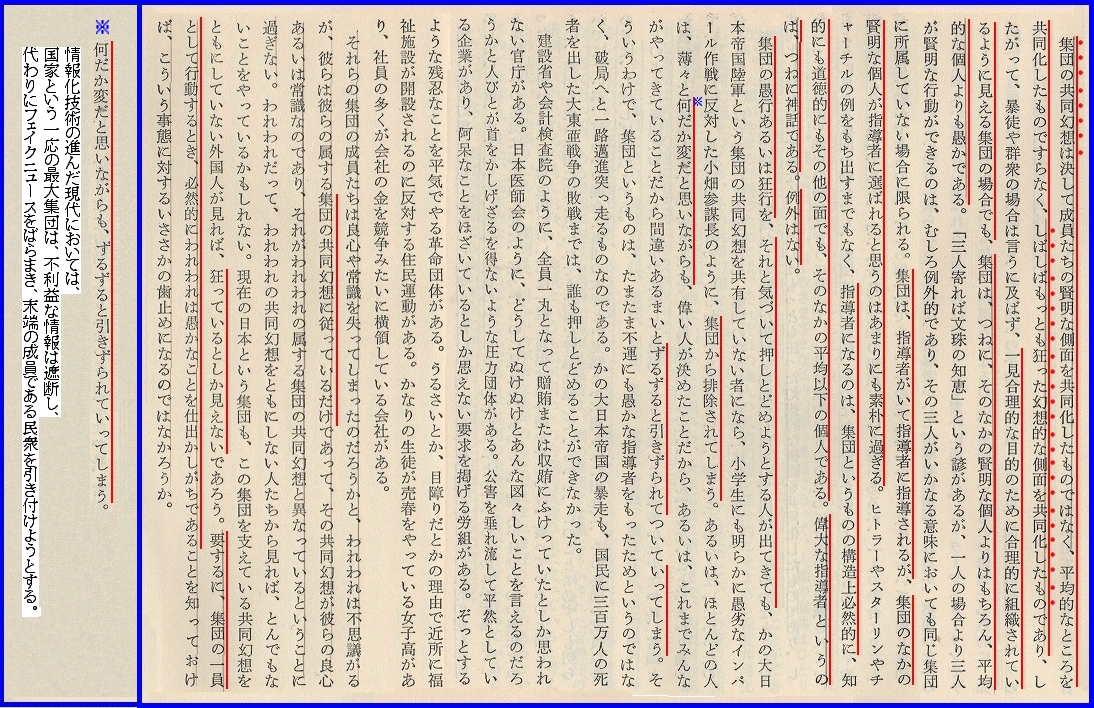 集団の共同幻想は決して成員たちの賢明な側面を共同化したものではなく、平均的なところを
共同化したものですらなく、しばしばもっとも狂った幻想的な側面を共同化したものであり、し
たがって、暴徒や群衆の場合は言うに及ばず、一見合理的な目的のために合理的に組織されてい
るように見える集団の場合でも、集団は、つねに、そのなかの賢明な個人よりはもちろん、平均
的な個人よりも愚かである。「三人寄れば文珠の知恵」という諺があるが、一人の場合より三人
が賢明な行動ができるのは、むしろ例外的であり、その三人がいかなる意味においても同じ集団
に所属していない場合に限られる。集団は、指導者がいて指導者に指導されるが、集団のなかの
賢明な個人が指導者に選ばれると思うのはあまりにも素朴に過ぎる。ヒトラーやスターリンやチ
ャーチルの例をもち出すまでもなく、指導者になるのは、集団というものの構造上必然的に、知
的にも道徳的にもその他の面でも、そのなかの平均以下の個人である。偉大な指導者というの
は、つねに神話である。例外はない。
集団の愚行あるいは狂行を、それと気づいて押しとどめようとする人が出てきても、かの大日
本帝国陸軍という集団の共同幻想を共有していない者になら、小学生にも明らかに愚劣なインパ
ール作戦に反対した小畑参謀長のように、集団から排除されてしまう。あるいは、ほとんどの人
は、薄々と何だか変だと思いながらも、偉い人が決めたことだから、あるいは、これまでみんな
がやってきていることだから間違いあるまいとずるずると引きずられてついていってしまう。そ
ういうわけで、集団というものは、たまたま不運にも愚かな指導者をもったためというのではな
く、破局へと一路邁進突っ走るものなのである。かの大日本帝国の暴走も、国民に三百万人の死
者を出した大東亜戦争の敗戦までは、誰も押しとどめることができなかった。
建設省や会計検査院のように、全員一丸となって贈賄または収賄にふけっていたとしか思われ
ない官庁がある。日本医師会のように、どうしてぬけぬけとあんな図々しいことを言えるのだろ
うかと人びとが首をかしげざるを得ないような圧力団体がある。公害を垂れ流して平然としてい
る企業があり、阿呆なことをほざいているとしか思えない要求を掲げる労組がある。ぞっとする
ような残忍なことを平気でやる革命団体がある。うるさいとか、目障りだとかの理由で近所に福
祉施設が開設されるのに反対する住民運動がある。かなりの生徒が売春をやっている女子高があ
り、社員の多くが会社の金を競争みたいに横領している会社がある。
それらの集団の成員たちは良心や常識を失ってしまったのだろうかと、われわれは不思議がる
が、彼らは彼らの属する集団の共同幻想に従っているだけであって、その共同幻想が彼らの良心
あるいは常識なのであり、それがわれわれの属する集団の共同幻想と異なっているということに
過ぎない。われわれだって、われわれの共同幻想をともにしない人たちから見れば、とんでもな
いことをやっているかもしれない。現在の日本という集団も、この集団を支えている共同幻想を
ともにしていない外国人が見れば、狂っているとしか見えないであろう。要するに、集団の一員
として行動するとき、必然的にわれわれは愚かなことを仕出かしがちであることを知っておけ
ば、こういう事態に対するいささかの歯止めになるのではなかろうか。
※
※ 何だか変だと思いながらも、ずるずると引きずられていってしまう。
情報化技術の進んだ現代においては、
国家という一応の最大集団は、不利益な情報は遮断し、
代わりにフェイクニュースをばらまき、末端の成員である民衆を引き付けようとする。